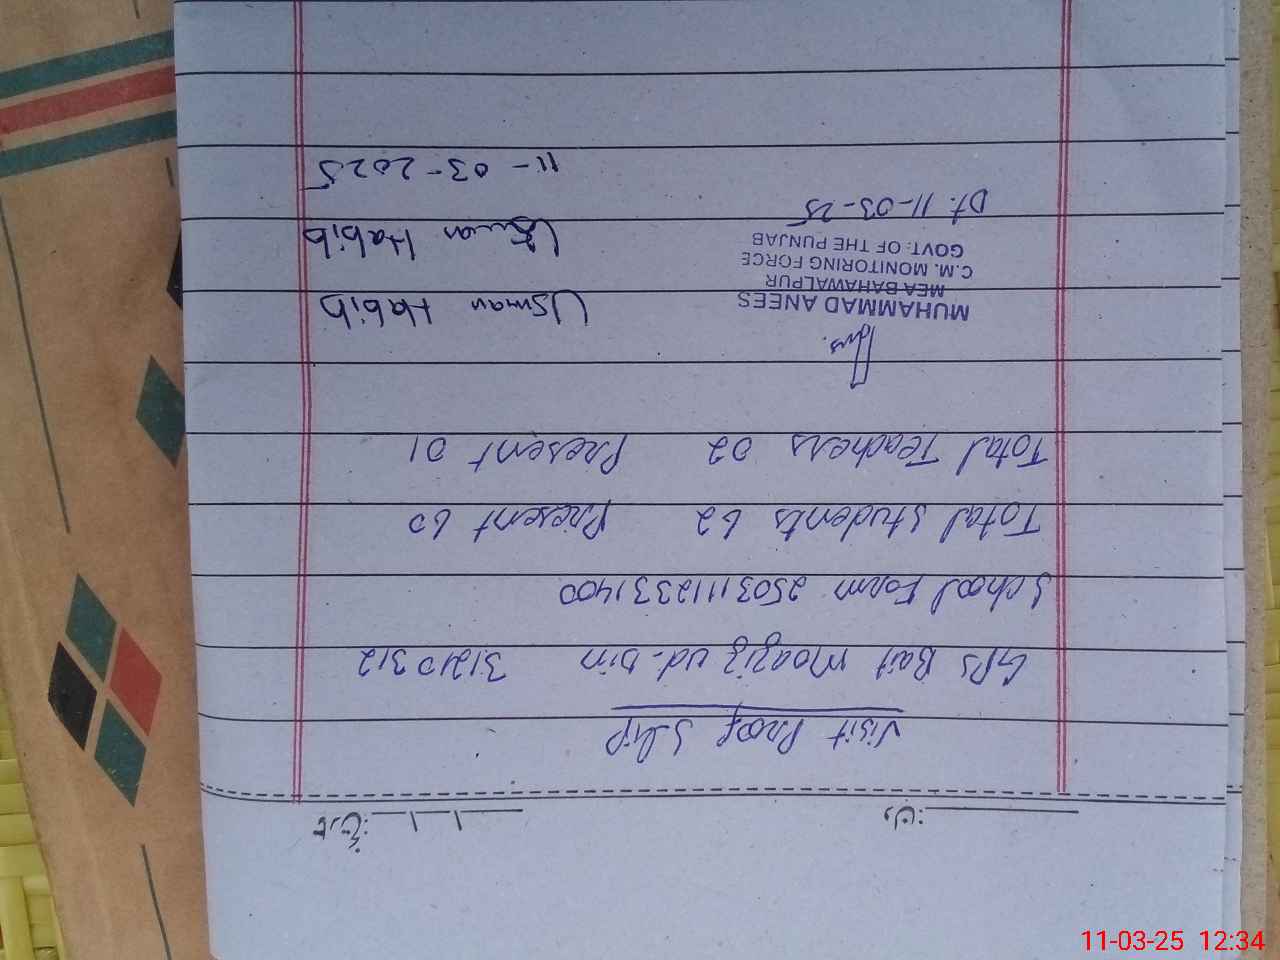 دن: تاریخ:
Visit Proof Slip
GPS Bait Moaziz ud-Din 31210312
School Form 25031112331400
Total Students 62 Present 60
Total Teachers 02 Present 01
MUHAMMAD ANEES
MEA BAHAWALPUR
C.M. MONITORING FORCE
GOVT: OF THE PUNJAB
Dt. 11-03-25
Usman Habib
Usman Habib
11-03-2025
11-03-25 12:34